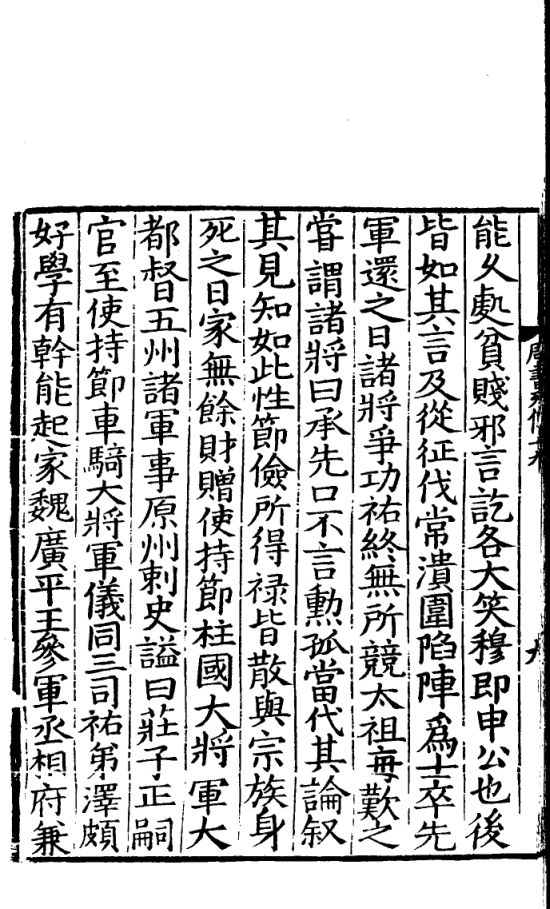 能久處貧賤邪言訖各大笑穆即申公也後
皆如其言及從征伐常潰圍陷陣爲士卒先
軍還之日諸將爭功祐終無所競太祖每歎之
嘗謂諸將曰承先口不言勲孤當代其論叙
其見知如此性節儉所得禄皆散與宗族身
死之日家無餘財贈使持節柱國大將軍大
都督五州諸軍事原州刺史謚曰莊子正嗣
官至使持節車騎大將軍儀同三司祐弟澤頗
好學有幹能起家魏廣平王參軍丞相府兼